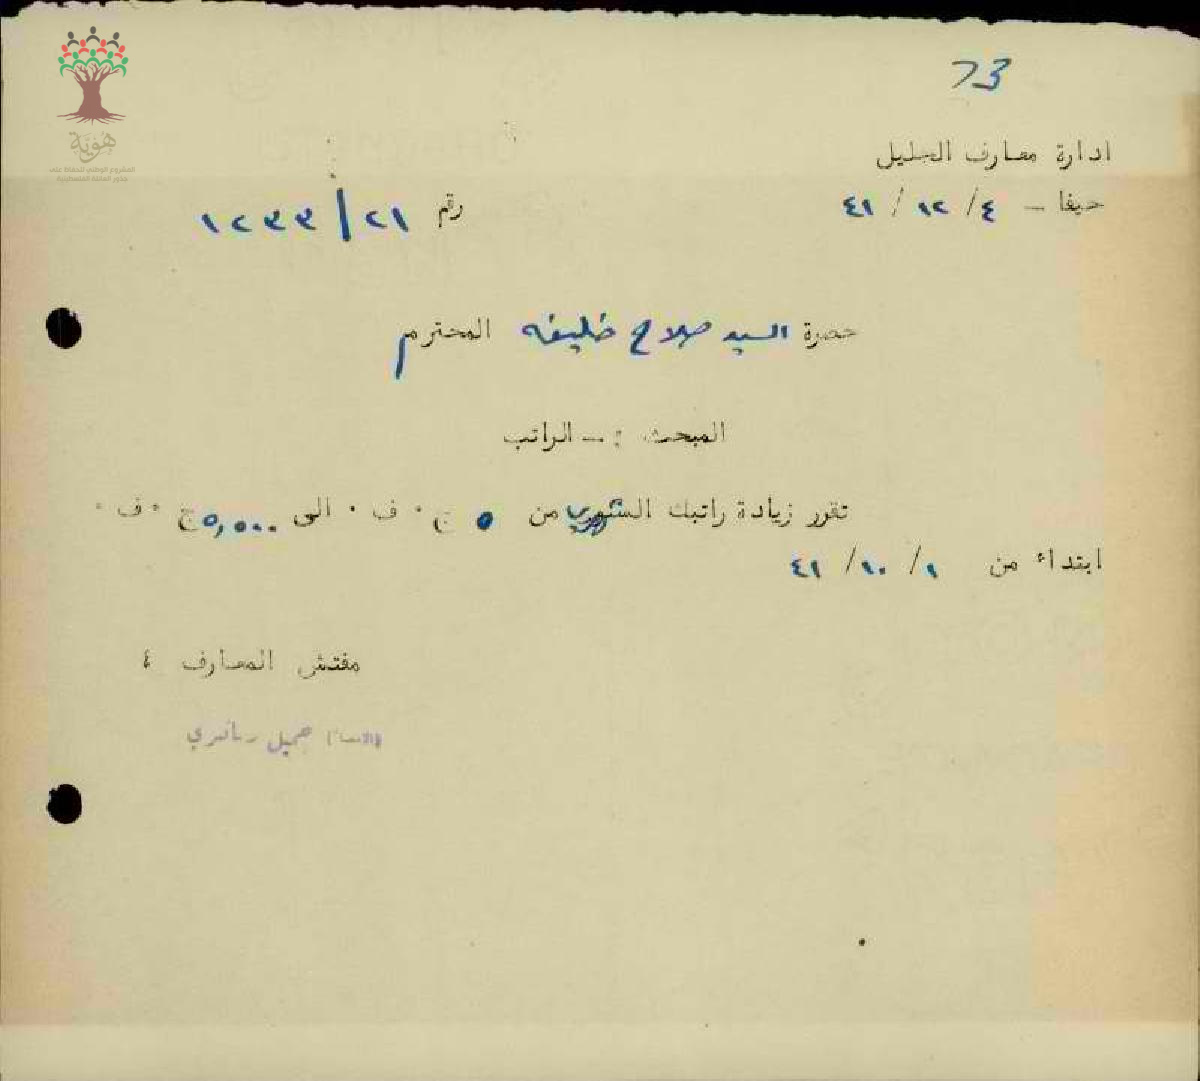 73
هوية
المشروع الوطني للحفاظ على
جذور العائلة الفلسطينية
ادارة معارف الجليل
حيفا - ٤/ ١٢/ ٤١
رقم ٢١/ ١٢٣٣
حضرة السيد صلاح خليفه المحترم
المبحث :- الراتب
تقرر زيادة راتبك الشهري من ٥ ج٠ ف٠ الى ٥,٥٠٠ ج٠ ف٠
ابتداء من ١/ ١٠/ ٤١
مفتش المعارف
جميل